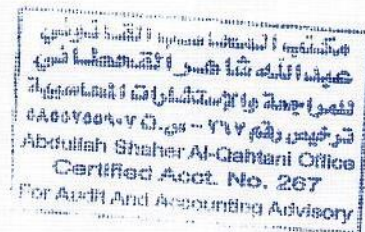 مكتب المحاسب القانوني
عبدالله شاهر القحطاني
للمراجعة والاستشارات المحاسبية
ترخيص رقم ٢٦٧ - س.ت
Abdullah Shaher Al-Qahtani Office
Certified Acct. No. 267
For Audit And Accounting Advisory